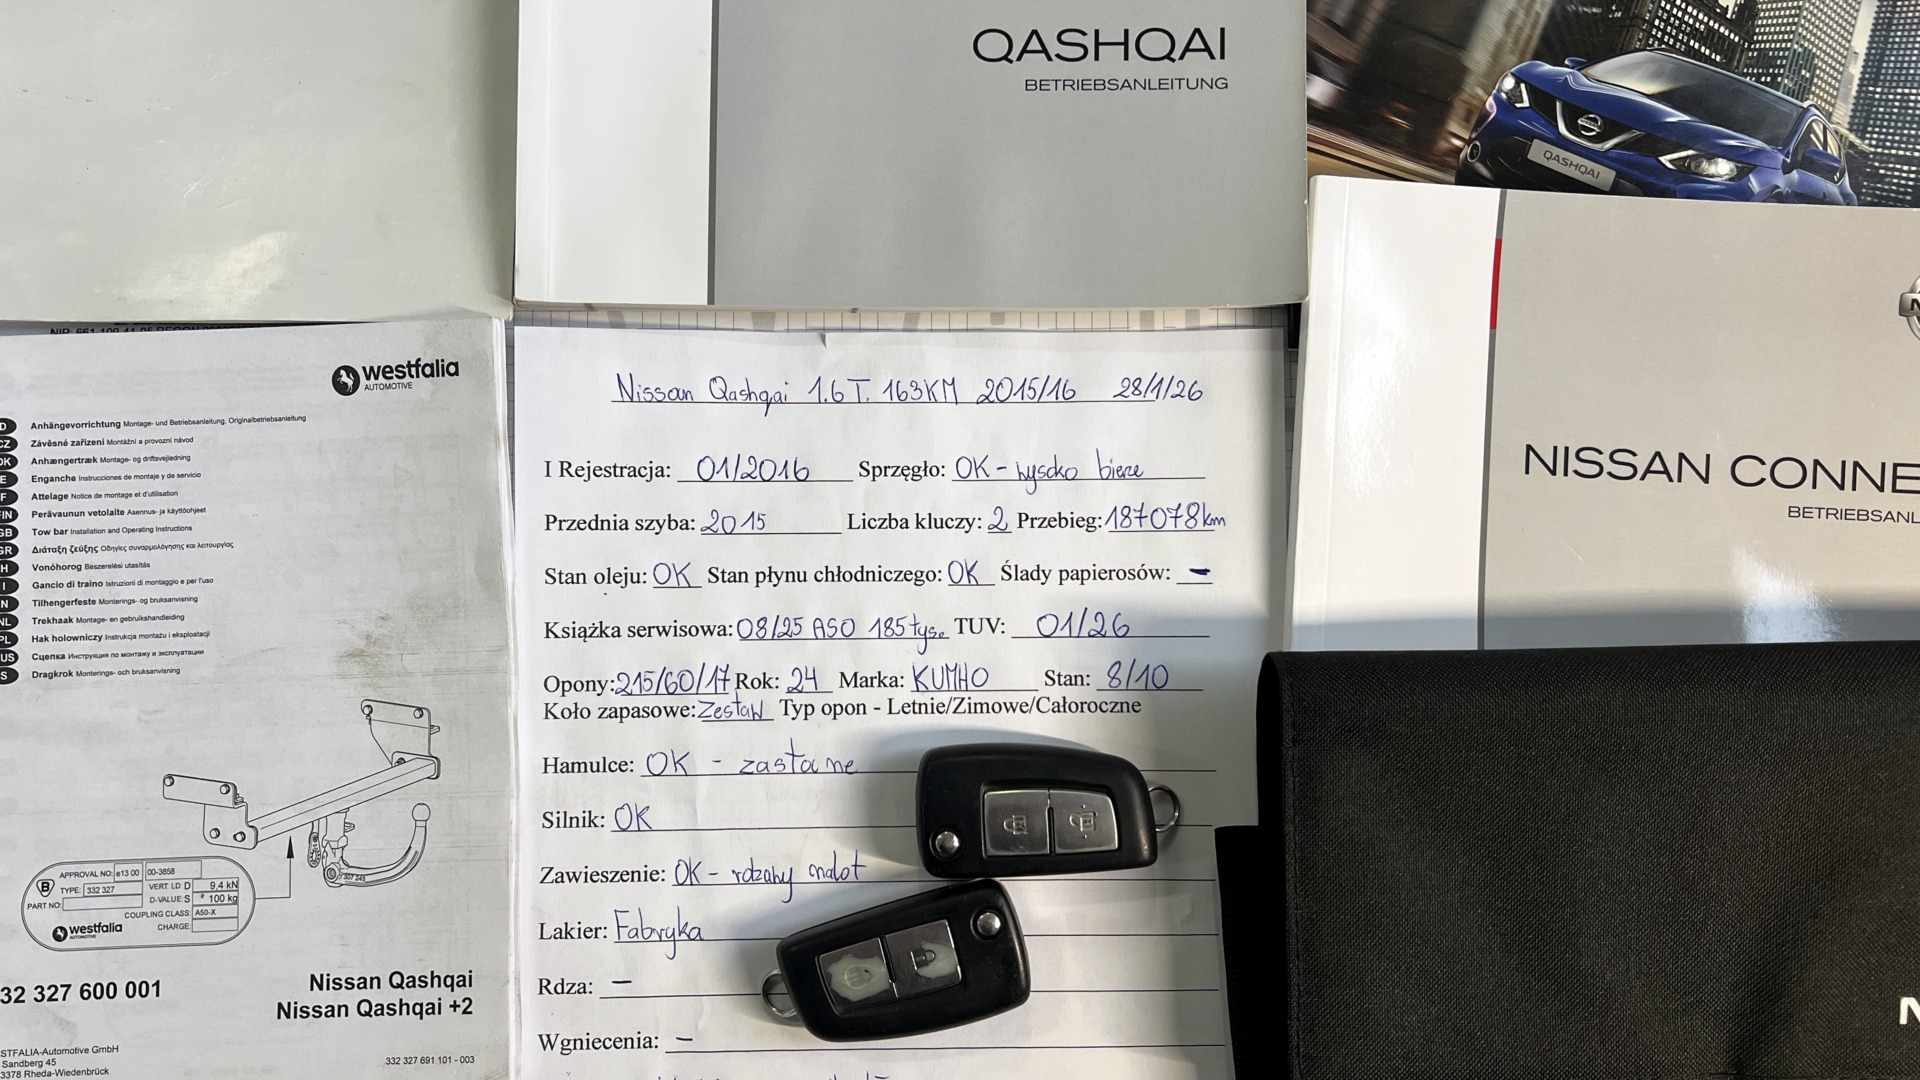 QASHQAI
BETRIEBSANLEITUNG
QASHQAI
NISSAN CONNE
BETRIEBSANL
westfalia
AUTOMOTIVE
D Anhängevorrichtung Montage- und Betriebsanleitung, Originalbetriebsanleitung
CZ Závěsné zařízení Montážní a provozní návod
DK Anhængertræk Montage- og driftsvejledning
E Enganche Instrucciones de montaje y de servicio
F Attelage Notice de montage et d'utilisation
FIN Perävaunun vetolaite Asennus- ja käyttöohjeet
GB Tow bar Installation and Operating Instructions
GR Διάταξη ζεύξης Οδηγίες συναρμολόγησης και λειτουργίας
H Vonóhorog Beszerelési utasítás
I Gancio di traino Istruzioni di montaggio e per l'uso
N Tilhengerfeste Monterings- og bruksanvisning
NL Trekhaak Montage- en gebruikshandleiding
PL Hak holowniczy Instrukcja montażu i eksploatacji
US Сцепка Инструкции по монтажу и эксплуатации
S Dragkrok Monterings- och bruksanvisning
307 245
APPROVAL NO: e13 00 00-3858
TYPE: 332 327 VERT. LD D 9,4 kN
PART NO: D-VALUE: S * 100 kg
COUPLING CLASS: A50-X
westfalia CHARGE:
AUTOMOTIVE
32 327 600 001
Nissan Qashqai
Nissan Qashqai +2
STFALIA-Automotive GmbH
Sandberg 45
3378 Rheda-Wiedenbrück
332 327 691 101 - 003
Nissan Qashqai 1.6T. 163KM 2015/16 28/1/26
I Rejestracja: 01/2016 Sprzęgło: OK - wysoko bierze
Przednia szyba: 2015 Liczba kluczy: 2 Przebieg: 187078km
Stan oleju: OK Stan płynu chłodniczego: OK Ślady papierosów: -
Książka serwisowa: 08/25 ASO 185tyś. TUV: 01/26
Opony: 215/60/17 Rok: 24 Marka: KUMHO Stan: 8/10
Koło zapasowe: Zestaw Typ opon - Letnie/Zimowe/Całoroczne
Hamulce: OK - zastane
Silnik: OK
Zawieszenie: OK -
Lakier: Fabryka
Rdza: -
Wgniecenia: -